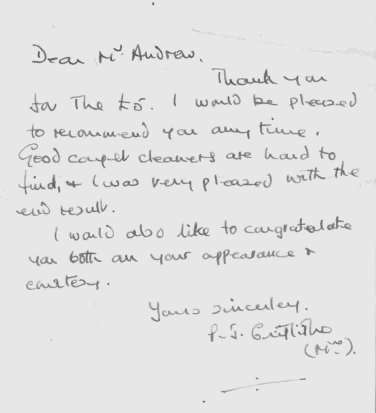 Dear Mr Andrew.
Thank you
for The £5. I would be pleased
to recommend you any time.
Good carpet cleaners are hard to
find, & I was very pleased with the
end result.
I would also like to congratulate
you both on your appearance &
courtesy.
Yours sincerley.
P. J. Griffiths
(Mrs).